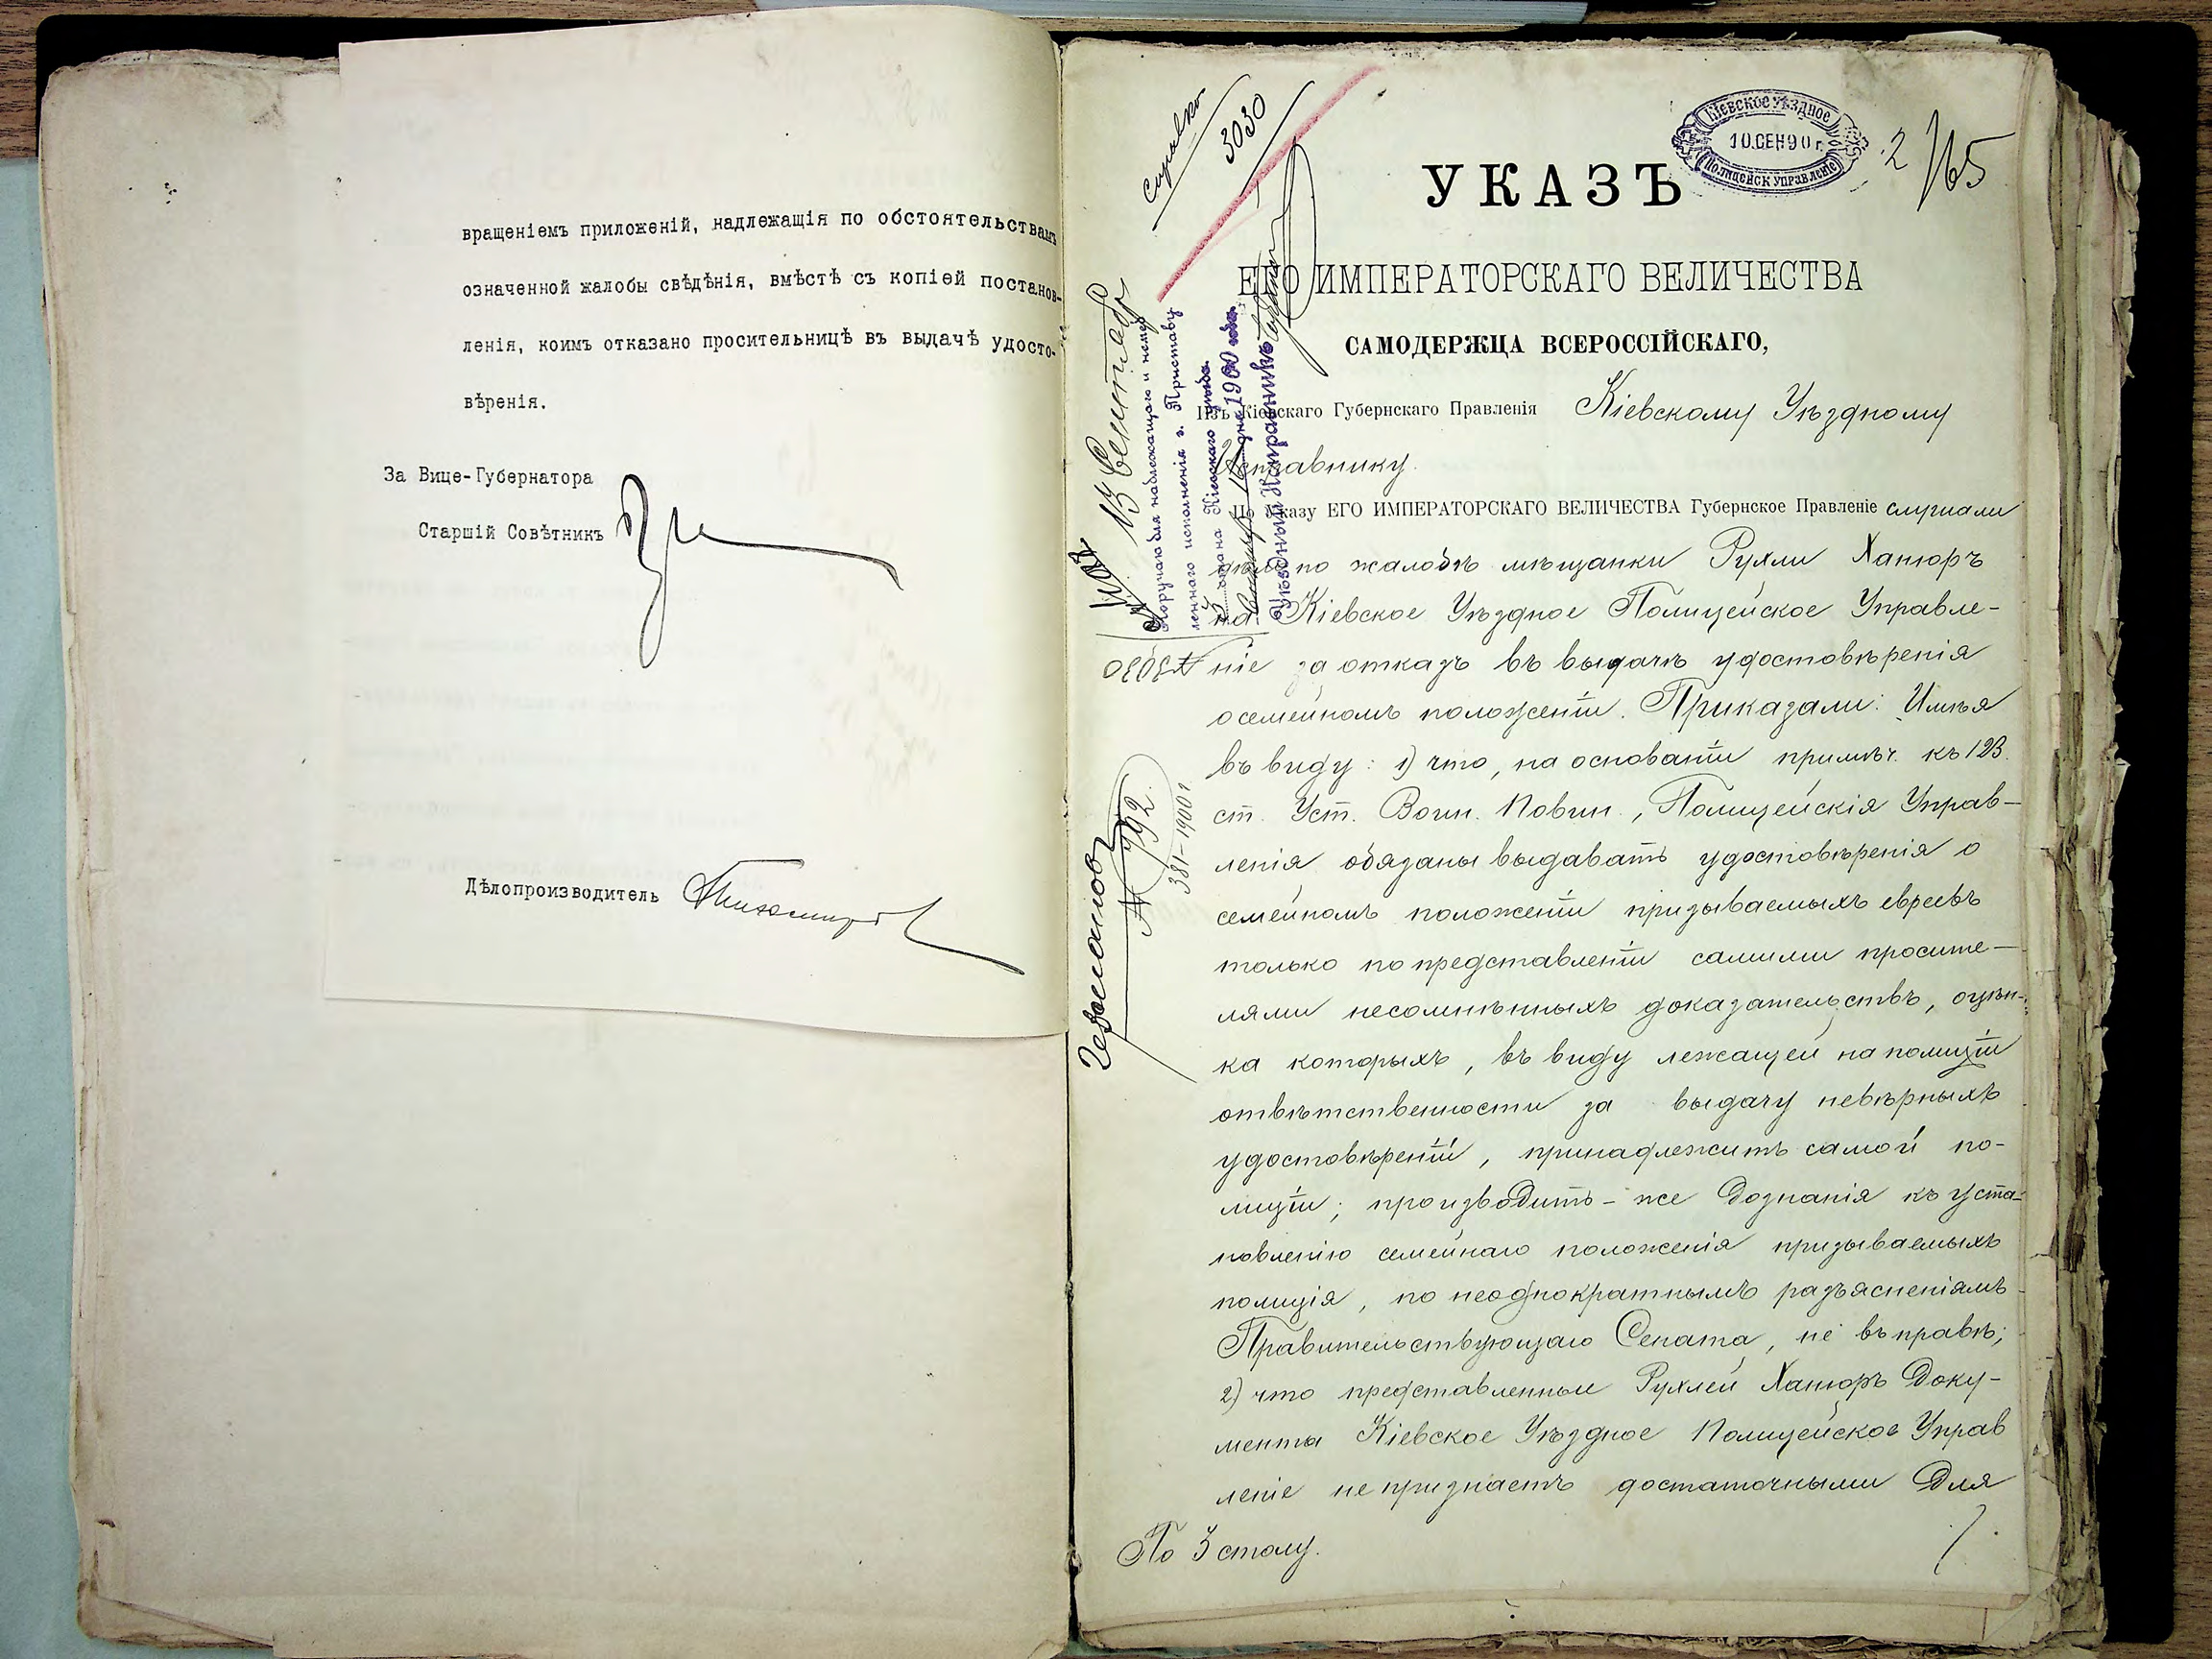 вращеніемъ приложеній, надлежащія по обстоятельствамъ
означенной жалобы свѣдѣнія, вмѣстѣ съ копіей постанов-
ленія, коимъ отказано просительницѣ въ выдачѣ удосто-
вѣренія.
За Вице-Губернатора
Старшій Совѣтникъ
Дѣлопроизводитель
Кіевское Уѣздное
10.СЕН90 г.
Полицейск Управленіе
2
165
УКАЗЪ
ЕГО ИМПЕРАТОРСКАГО ВЕЛИЧЕСТВА
САМОДЕРЖЦА ВСЕРОССІЙСКАГО,
Изъ Кіевскаго Губернскаго Правленія Кіевскому Уѣздному
Исправнику.
По Указу ЕГО ИМПЕРАТОРСКАГО ВЕЛИЧЕСТВА Губернское Правленіе слушали
дѣло по жалобѣ мѣщанки Рухли Ханюръ
на Кіевское Уѣздное Полицейское Управле-
ніе за отказъ въ выдачѣ удостовѣренія
о семейномъ положеніи. Приказали: Имѣя
въ виду: 1) что, на основаніи примѣч. къ 123
ст. Уст. Воин. Повин., Полицейскія Управ-
ленія обязаны выдавать удостовѣренія о
семейномъ положеніи призываемыхъ евреевъ
только по представленіи самими просите-
лями несомнѣнныхъ доказательствъ, оцѣн-
ка которыхъ, въ виду лежащей на полиціи
отвѣтственности за выдачу невѣрныхъ
удостовѣреній, принадлежитъ самой по-
лиціи; производить-же дознанія къ уста-
новленію семейнаго положенія призываемыхъ
полиція, по неоднократнымъ разъясненіямъ
Правительствующаго Сената, не въ правѣ;
2) что представленные Рухлей Ханюръ доку-
менты Кіевское Уѣздное Полицейское Управ
леніе не признаетъ достаточными для
По 3 столу.
справка
3030
13 Сентября
Поручаю для надлежащаго и немед
леннаго исполненія г. Приставу
стана Кіевскаго уѣзда.
1900 года.
Уѣздный Исправникъ
№ 3030
№ 992.
381-1900 г